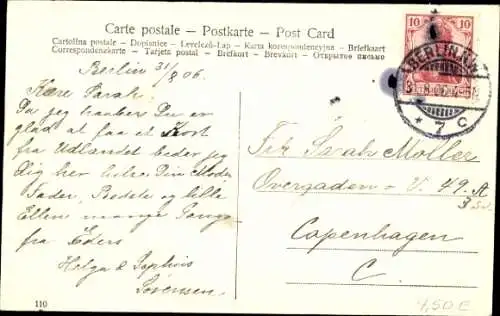 Carte postale – Postkarte – Post Card
Cartolina postale – Dopisnice – Levelező-Lap – Karta korespondencyjna – Briefkaart
Correspondenzkarte – Tarjeta postal – Brefkort – Brevkort – Открытое письмо
Berlin 31/8 06.
Kære Sarah
Da jeg Du er
glad at faa et Kort
fra Udlandet beder jeg
Dig her Din Moder
Fader, Bedste og lille
Ellen mange Gange
fra Eders
Helga & Sophus
Sørensen
10 10
BERLIN
* 7 c
Frk Sarah Møller
Overgaden - V. 49 A
3 Sal
Copenhagen
C.
110
4,50 E